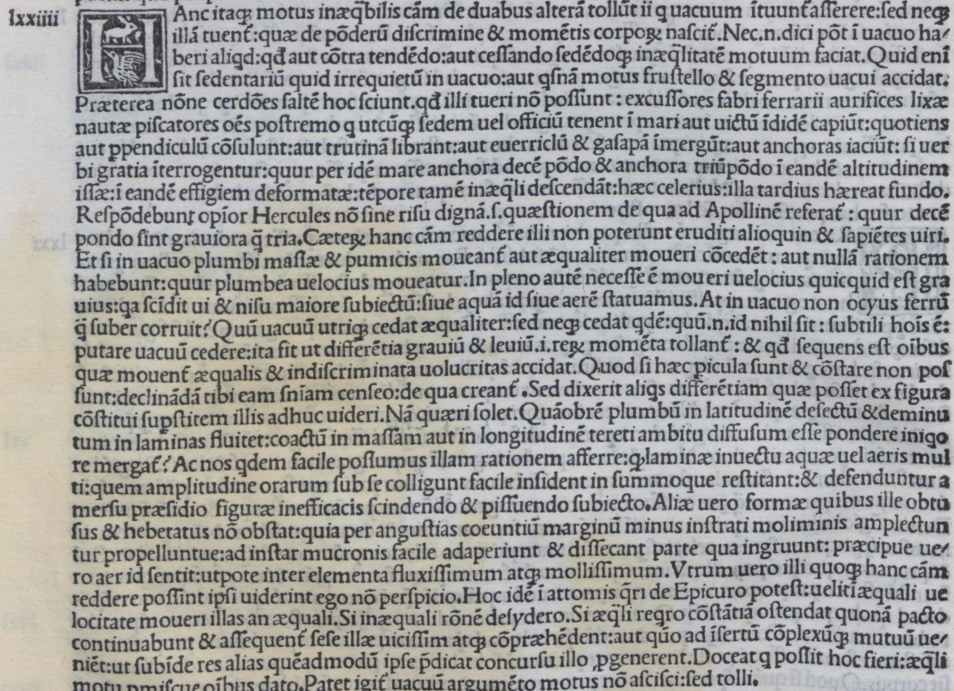 lxxiiii
HAnc itaq; motus inæq̃bilis cãm de duabus alterã tollũt ii q uacuum ĩtuunt̃ asserere:sed neq;
illã tuent̃:quæ de põderũ discrimine & momẽtis corpoꝝ nascit̃. Nec.n.dici põt ĩ uacuo ha/
beri aliqd:qđ aut cõtra tendẽdo:aut cessando sedẽdoq; inæq̃litatẽ motuum faciat.Quid eni
sit sedentariũ quid irrequietũ in uacuo:aut q̃snã motus frustello & segmento uacui accidat.
Præterea nõne cerdões saltẽ hoc sciunt.qđ illi tueri nõ possunt: excussores fabri ferrarii aurifices lixæ
nautæ piscatores oẽs postremo q utcũq; sedem uel officiũ tenent ĩ mari aut uictũ ĩdidẽ capiũt:quotiens
aut ꝑpendiculũ cõsulunt:aut trutinã librant:aut euerriclũ & gasapã ĩmergũt:aut anchoras iaciũt: si uer
bi gratia ĩterrogentur:quur per idẽ mare anchora decẽ põdo & anchora triũpõdo ĩ eandẽ altitudinem
issæ:ĩ eandẽ effigiem deformatæ:tẽpore tamẽ inæq̃li descendãt:hæc celerius:illa tardius hæreat fundo.
Respõdebunt opĩor Hercules nõ sine risu dignã.s.quæstionem de qua ad Apollinẽ referat̃: quur decẽ
pondo sint grauiora q̃ tria.Cæteꝝ hanc cãm reddere illi non poterunt eruditi alioquin & sapiẽtes uiri.
Et si in uacuo plumbi massæ & pumicis moueant̃ aut æqualiter moueri cõcedẽt: aut nullã rationem
habebunt:quur plumbea uelocius moueatur.In pleno autẽ necesse ẽ moueri uelocius quicquid est gra
uius:qa scĩdit ui & nisu maiore subiectũ:siue aquã id siue aerẽ statuamus.At in uacuo non ocyus ferrũ
q̃ suber corruit?Quũ uacuũ utriq; cedat æqualiter:sed neq; cedat qdẽ:quũ.n.id nihil sit: subtili hoĩs ẽ:
putare uacuũ cedere:ita fit ut differẽtia grauiũ & leuiũ.i.reꝝ momẽta tollant̃: & qđ sequens est oĩbus
quæ mouent̃ æqualis & indiscriminata uolucritas accidat. Quod si hæc picula sunt & cõstare non pos
sunt:declinãdã tibi eam sñiam censeo:de qua creant̃. Sed dixerit aliqs differẽtiam quæ posset ex figura
cõstitui supstitem illis adhuc uideri.Nã quæri solet.Quãobrẽ plumbũ in latitudinẽ defectũ &deminu
tum in laminas fluitet:coactũ in massam aut in longitudinẽ tereti ambitu diffusum esse pondere iniqo
re mergat̃?Ac nos qdem facile possumus illam rationem afferre:q; laminæ inuectu aquæ uel aeris mul
ti:quem amplitudine orarum sub se colligunt facile insident in summoque restitant:& defenduntur a
mersu præsidio figuræ inefficacis scindendo & pissuendo subiecto.Aliæ uero formæ quibus ille obtu
sus & hebetatus nõ obstat:quia per angustias coeuntiũ marginũ minus instrati moliminis amplectun
tur propelluntue:ad instar mucronis facile adaperiunt & dissecant parte qua ingruunt: præcipue ue/
ro aer id sentit:utpote inter elementa fluxissimum atq; mollissimum.Vtrum uero illi quoq; hanc cãm
reddere possint ipsi uiderint ego nõ perspicio.Hoc idẽ ĩ attomis q̃ri de Epicuro potest:uelitĩ æquali ue
locitate moueri illas an æquali.Si inæquali rõnẽ desydero.Si æq̃li reqro cõstãtiã ostendat quonã pacto
continuabunt & assequent̃ sese illæ uicissim atq; cõpræhẽdent:aut quõ ad ĩsertũ cõplexũq; mutuũ ue/
niẽt:ut subĩde res alias quẽadmodũ ipse p̃dicat concursu illo ꝓgenerent.Doceat q possit hoc fieri:æq̃li
motu pmiscue oĩbus dato.Patet igit̃ uacuũ argumẽto motus nõ ascisci:sed tolli.